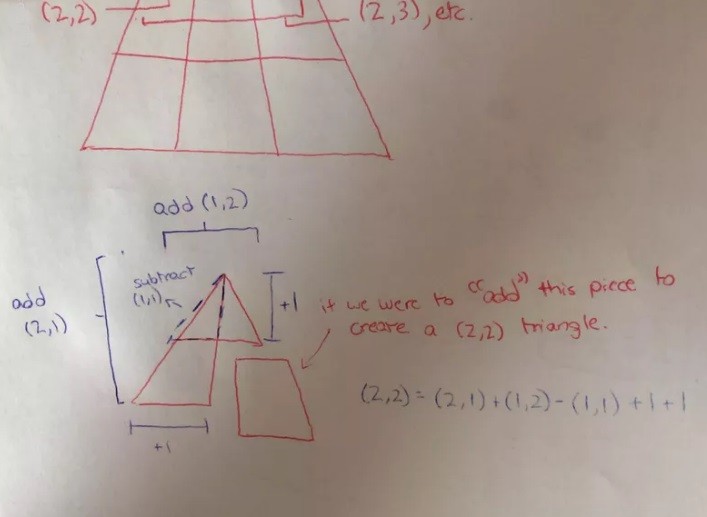 (2,2)
(2,3), etc.
add (1,2)
subtract
(1,1)
add
(2,1)
+1
if we were to "add" this piece to
create a (2,2) triangle.
(2,2) = (2,1) + (1,2) - (1,1) + 1 + 1
+1